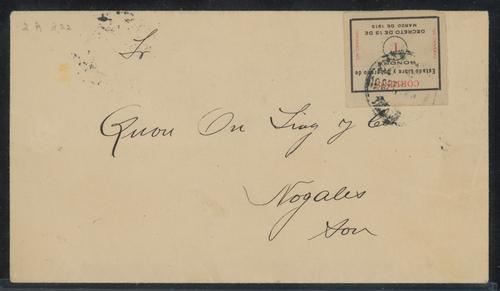 2 A 822
Sr
Quon On Ling y Co
Nogales
Son
CORREOS
Estado Libre y Soberano de
SONORA
1
DECRETO DE 13 DE
MARZO DE 1913